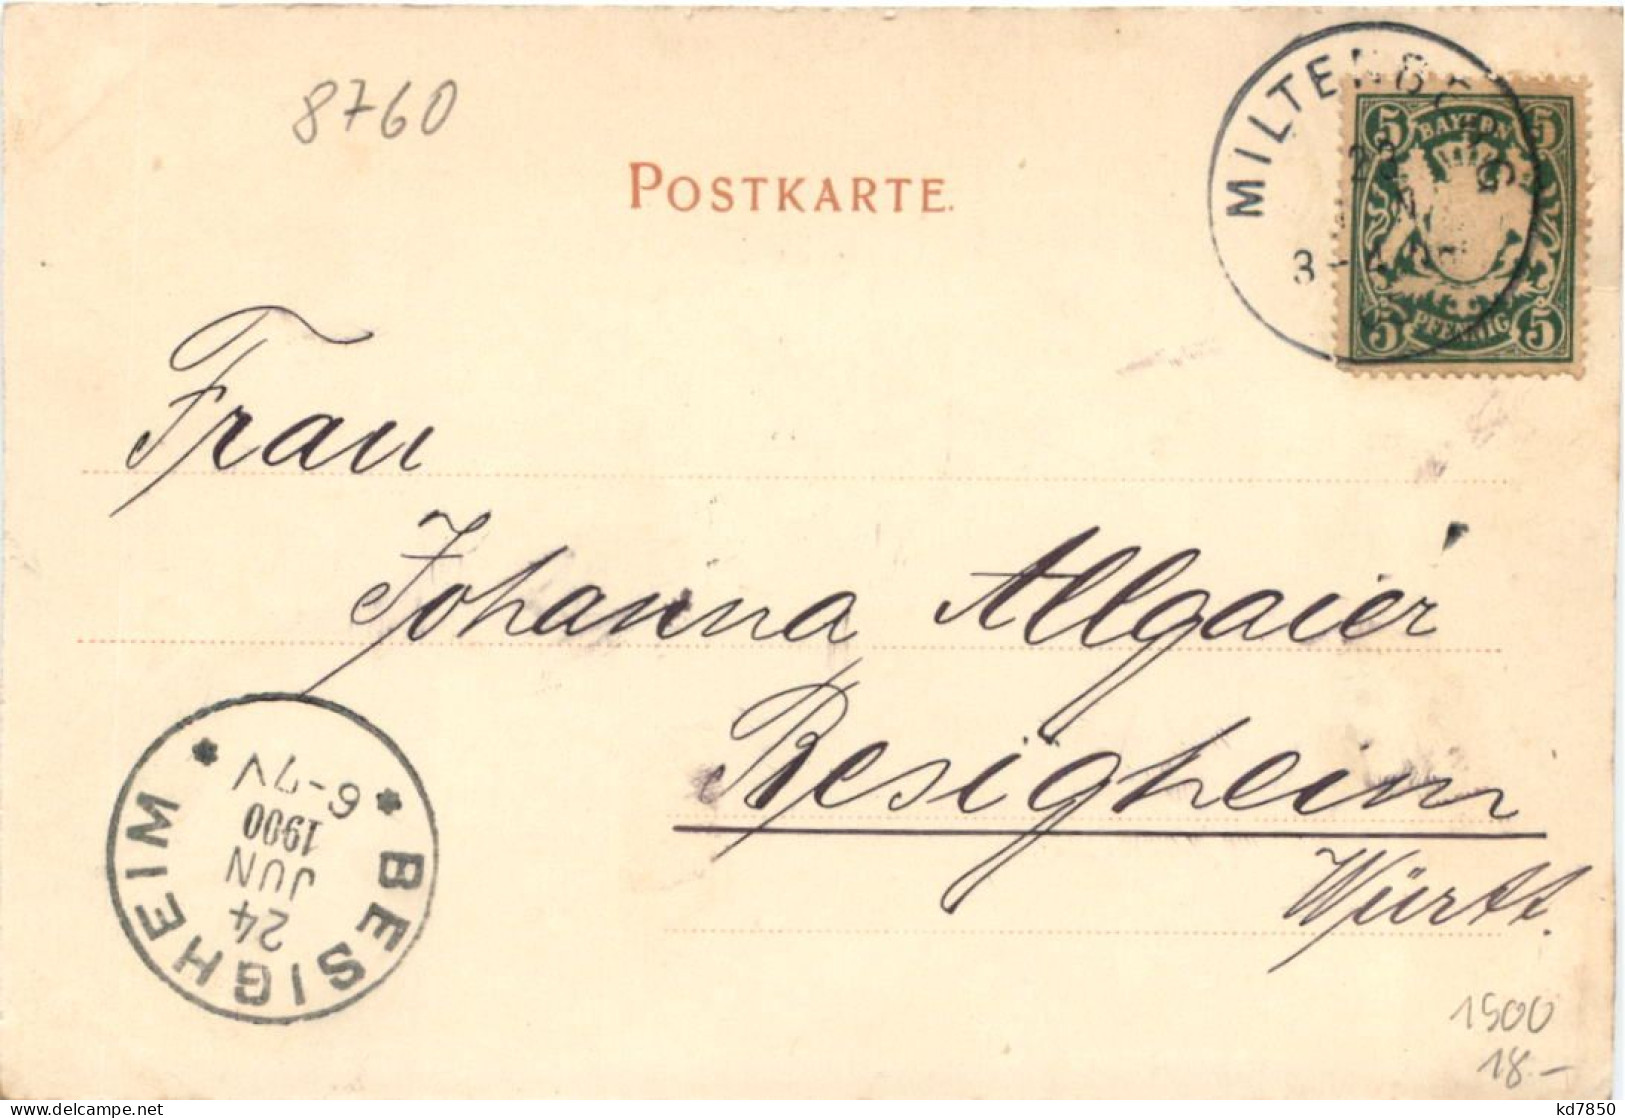 8760
POSTKARTE.
MILTENBERG
3-4
5 BAYERN 5
5 PFENNIG 5
Frau
Johanna Allgaier
Besigheim
Württ.
* BESIGHEIM *
24
JUN
1900
6-7V
1500
18.-
kd7850